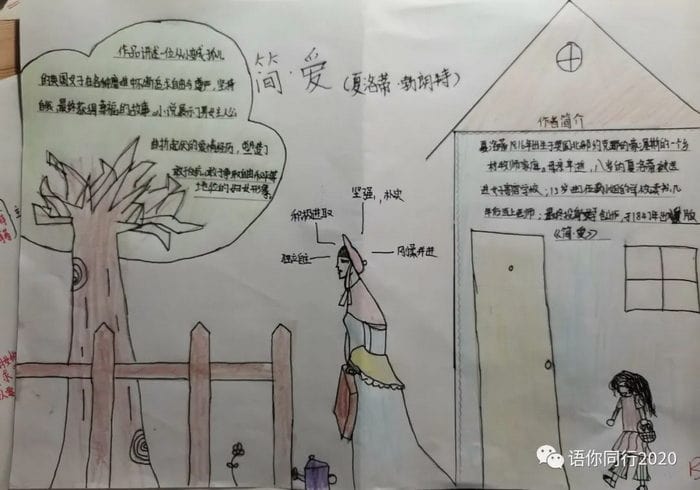 简·爱
(夏洛蒂·勃朗特)
作品讲述一位从小变成孤儿
的英国女子在各种磨难中不断追求自由与尊严,坚持
自我,最终获得幸福的故事。小说展示了男女主人公
曲折起伏的爱情经历,塑造了
敢于反抗,敢于争取自由和平等
地位的妇女形象。
坚强,朴实
积极进取
作者简介
夏洛蒂1816年出生于英国北部约克郡的豪渥斯的一个乡
村牧师家庭。母亲早逝,八岁的夏洛蒂被送
进
女子寄宿学校;15岁
学校读书,几
年后
当老师;最终投身
创作,于1847年出版
《简·爱》
语你同行2020